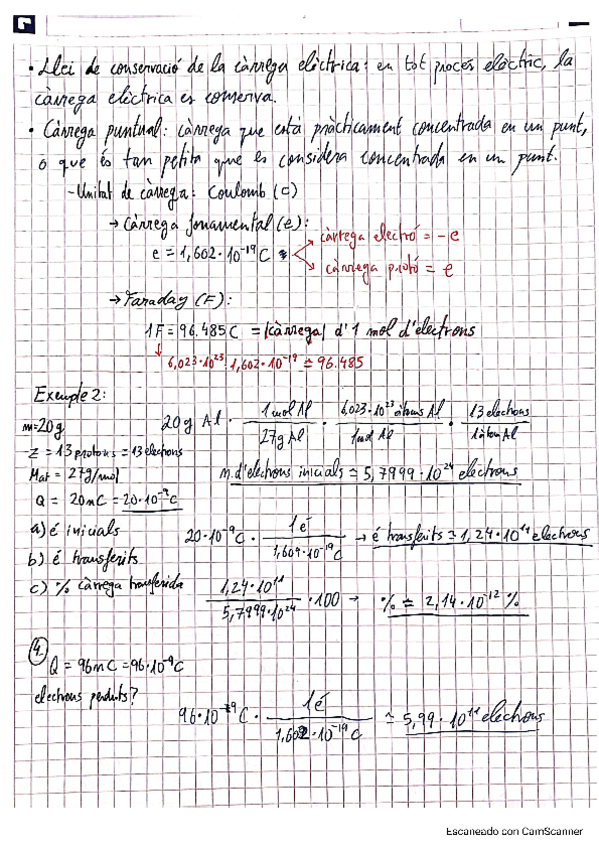 • Llei de conservació de la càrrega elèctrica: en tot procés elèctric, la
càrrega elèctrica es conserva.
• Càrrega puntual: càrrega que està pràcticament concentrada en un punt,
o que és tan petita que es considera concentrada en un punt.
- Unitat de càrrega: Coulomb (C)
→ Càrrega fonamental (e):
e = 1,602·10⁻¹⁹ C
càrrega electró = -e
càrrega protó = e
→ Faraday (F):
1F = 96.485 C = |càrrega| d'1 mol d'electrons
↓ 6,023·10²³ · 1,602·10⁻¹⁹ ≃ 96.485
Exemple 2:
m=20g
20g Al · 1 mol Al / 27g Al · 6,023·10²³ àtoms Al / 1 mol Al · 13 electrons / 1 àtom Al
Z = 13 protons = 13 electrons
Mat = 27g/mol
n. d'electrons inicials ≃ 5,7999·10²⁴ electrons
Q = 20nC = 20·10⁻⁹C
a) é inicials
20·10⁻⁹C · 1é / 1,609·10⁻¹⁹C → é transferits ≃ 1,24·10¹¹ electrons
b) é transferits
c) % càrrega transferida
1,24·10¹¹ / 5,7999·10²⁴ · 100 → % ≃ 2,14·10⁻¹² %
4.
Q = 96nC = 96·10⁻⁹C
electrons perduts?
96·10⁻⁹C · 1é / 1,602·10⁻¹⁹C ≃ 5,99·10¹¹ electrons
Escaneado con CamScanner